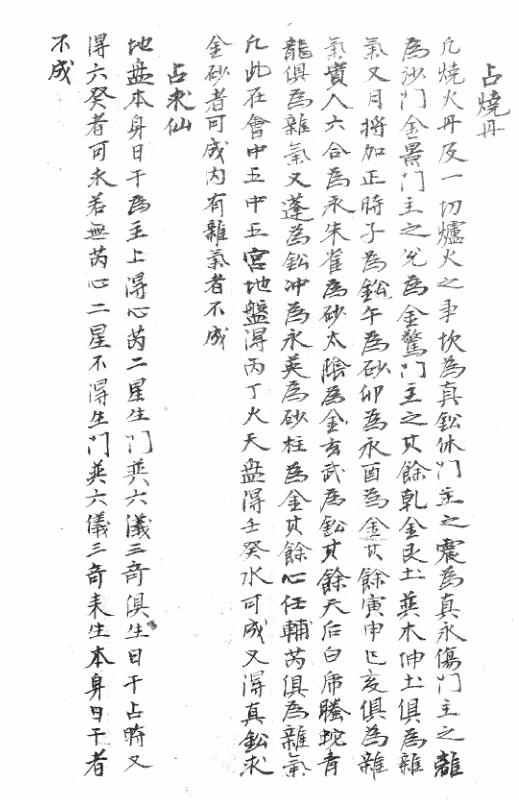 占燒丹
凡燒火丹及一切爐火之事坎為真鈆休門主之震為真永傷門主之離
為砂門金景門主之兌為金驚門主之其餘乾金艮土巽木伸土俱為雜
氣又月將加正時子為鈆午為砂卯為永酉為金其餘寅申巳亥俱為雜
氣貴人六合為永朱雀為砂太陰為金玄武為鈆其餘天后白虎螣蛇青
龍俱為雜氣又蓬為鈆冲為永英為砂柱為金其餘心任輔芮俱為雜氣
凡此在會中五中五宮地盤得丙丁火天盤得壬癸水可成又得真鈆永
金砂者可成內有雜氣者不成
占求仙
地盘本身日干為主上得心芮二星生門與六儀三奇俱生日干占時又
得六癸者可求若無芮心二星不得生門與六儀三奇來生本身日干者
不成